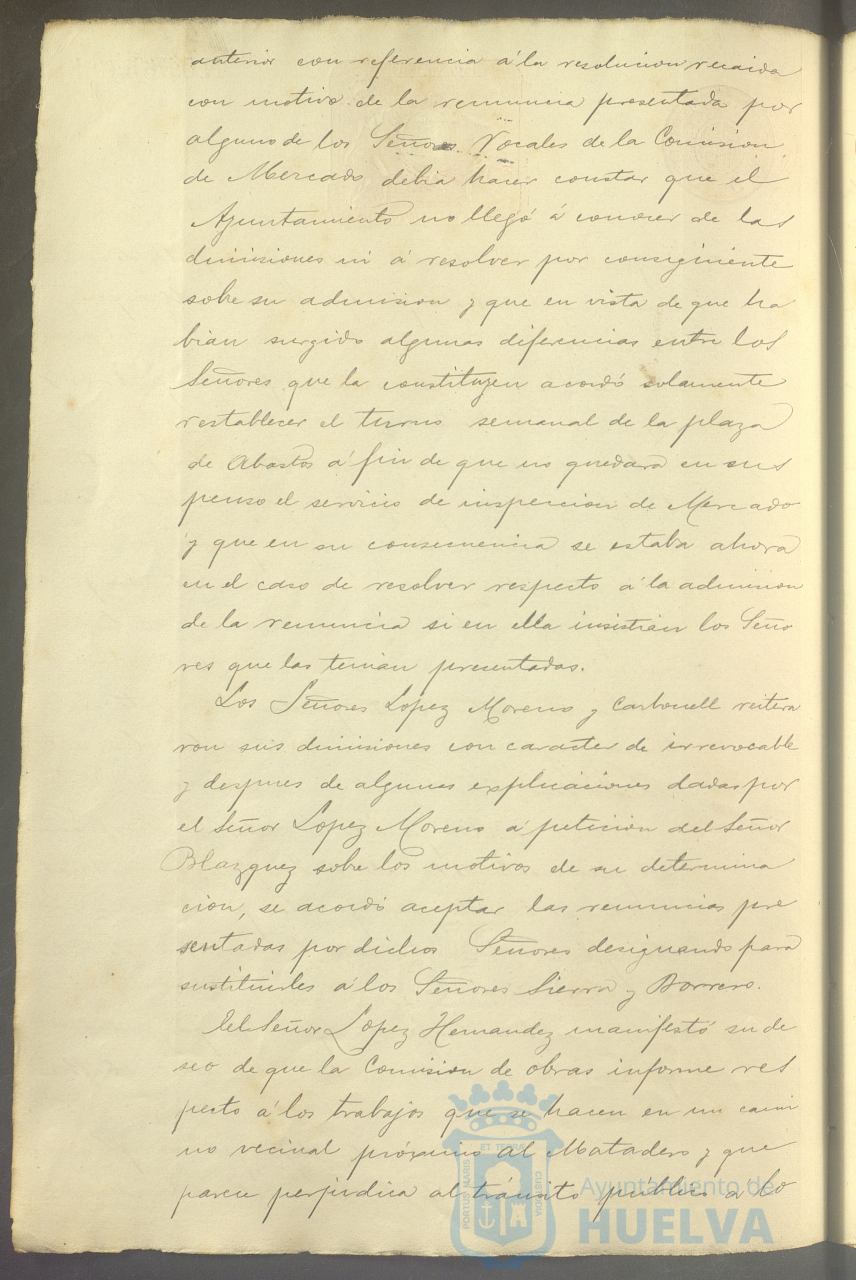 anterior con referencia á la resolucion recaida
con motivo de la renuncia presentada por
alguno de los Señores Vocales de la Comision
de Mercado debia hacer constar que el
Ayuntamiento no llegó á conocer de las
dimisiones ni á resolver por consiguiente
sobre su admision y que en vista de que ha
bian surgido algunas diferencias entre los
Señores que la constituyen acordó solamente
restablecer el turno semanal de la plaza
de Abastos á fin de que no quedara en sus
penso el servicio de inspeccion de Mercado
y que en su consecuencia se estaba ahora
en el caso de resolver respecto á la admision
de la renuncia si en ella insistian los Seño
res que las tenian presentadas.
Los Señores Lopez Moreno y Carbonell reitera
ron sus dimisiones con caracter de irrevocable
y despues de algunas explicaciones dadas por
el Señor Lopez Moreno á peticion del Señor
Blazquez sobre los motivos de su determina
cion, se acordó aceptar las renuncias pre
sentadas por dichos Señores designando para
sustituirles á los Señores Sierra y Borrero.
El Señor Lopez Hernandez manifestó su de
seo de que la Comision de obras informe res
pecto á los trabajos que se hacen en un cami
no vecinal próximo al Matadero y que
parece perjudica al tránsito publico á lo
PORTUS MARIS ET TERRAE CUSTODIA
Ayuntamiento de
HUELVA